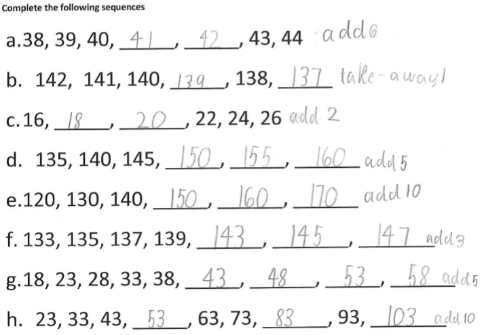 Complete the following sequences
a.38, 39, 40, 41, 42, 43, 44 add6
b. 142, 141, 140, 139, 138, 137 take-away1
c.16, 18, 20, 22, 24, 26 add 2
d. 135, 140, 145, 150, 155, 160 add5
e.120, 130, 140, 150, 160, 170 add 10
f. 133, 135, 137, 139, 143, 145, 147 add3
g.18, 23, 28, 33, 38, 43, 48, 53, 58 add5
h. 23, 33, 43, 53, 63, 73, 83, 93, 103 add 10